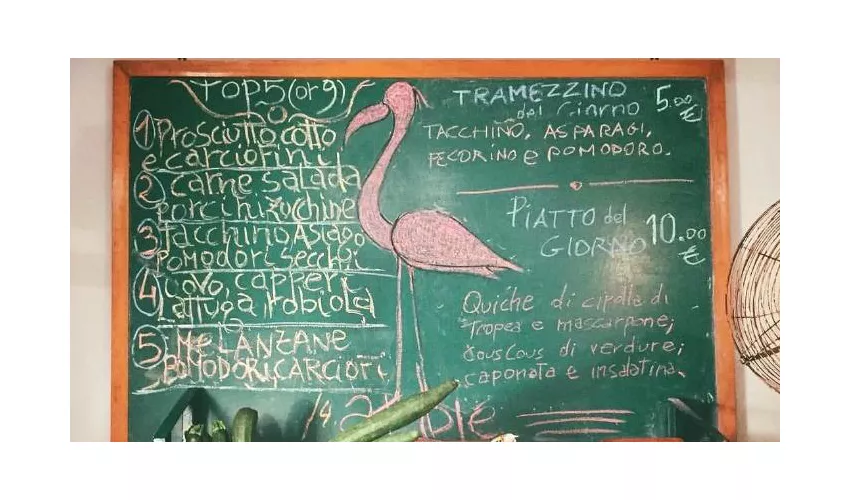 TOP 5 (or 9)
1 Prosciutto cotto
e carciofini
2 carne salada
porcini zucchine
3 Tacchino Asiago
Pomodori secchi
4 uovo, capperi
Lattuga, robiola
5 MELANZANE
POMODORI, CARCIOFI
TRAMEZZINO
del Giorno 5.00 €
TACCHINO, ASPARAGI,
PECORINO e POMODORO.
PIATTO del
GIORNO 10.00 €
Quiche di cipolla di
Tropea e mascarpone;
Couscous di verdure;
caponata e insalatina.